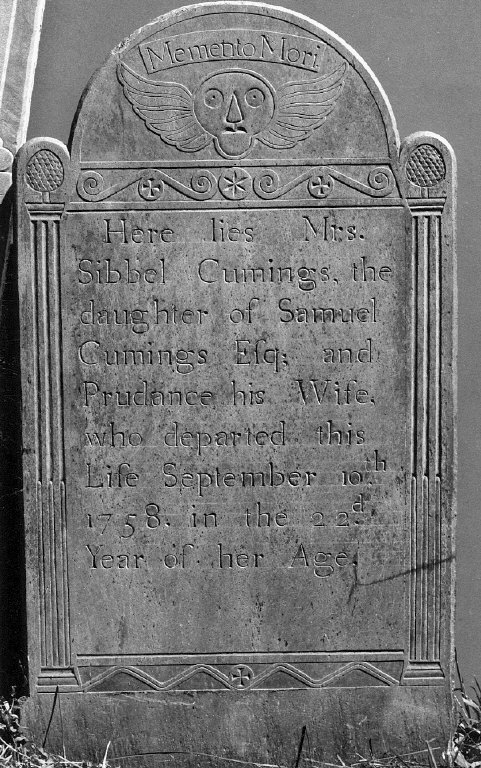 Memento Mori.
Here lies Mrs.
Sibbel Cumings, the
daughter of Samuel
Cumings Eſq; and
Prudance his Wife,
who departed this
Life September 10.th
1758. in the 22.d
Year of her Age.